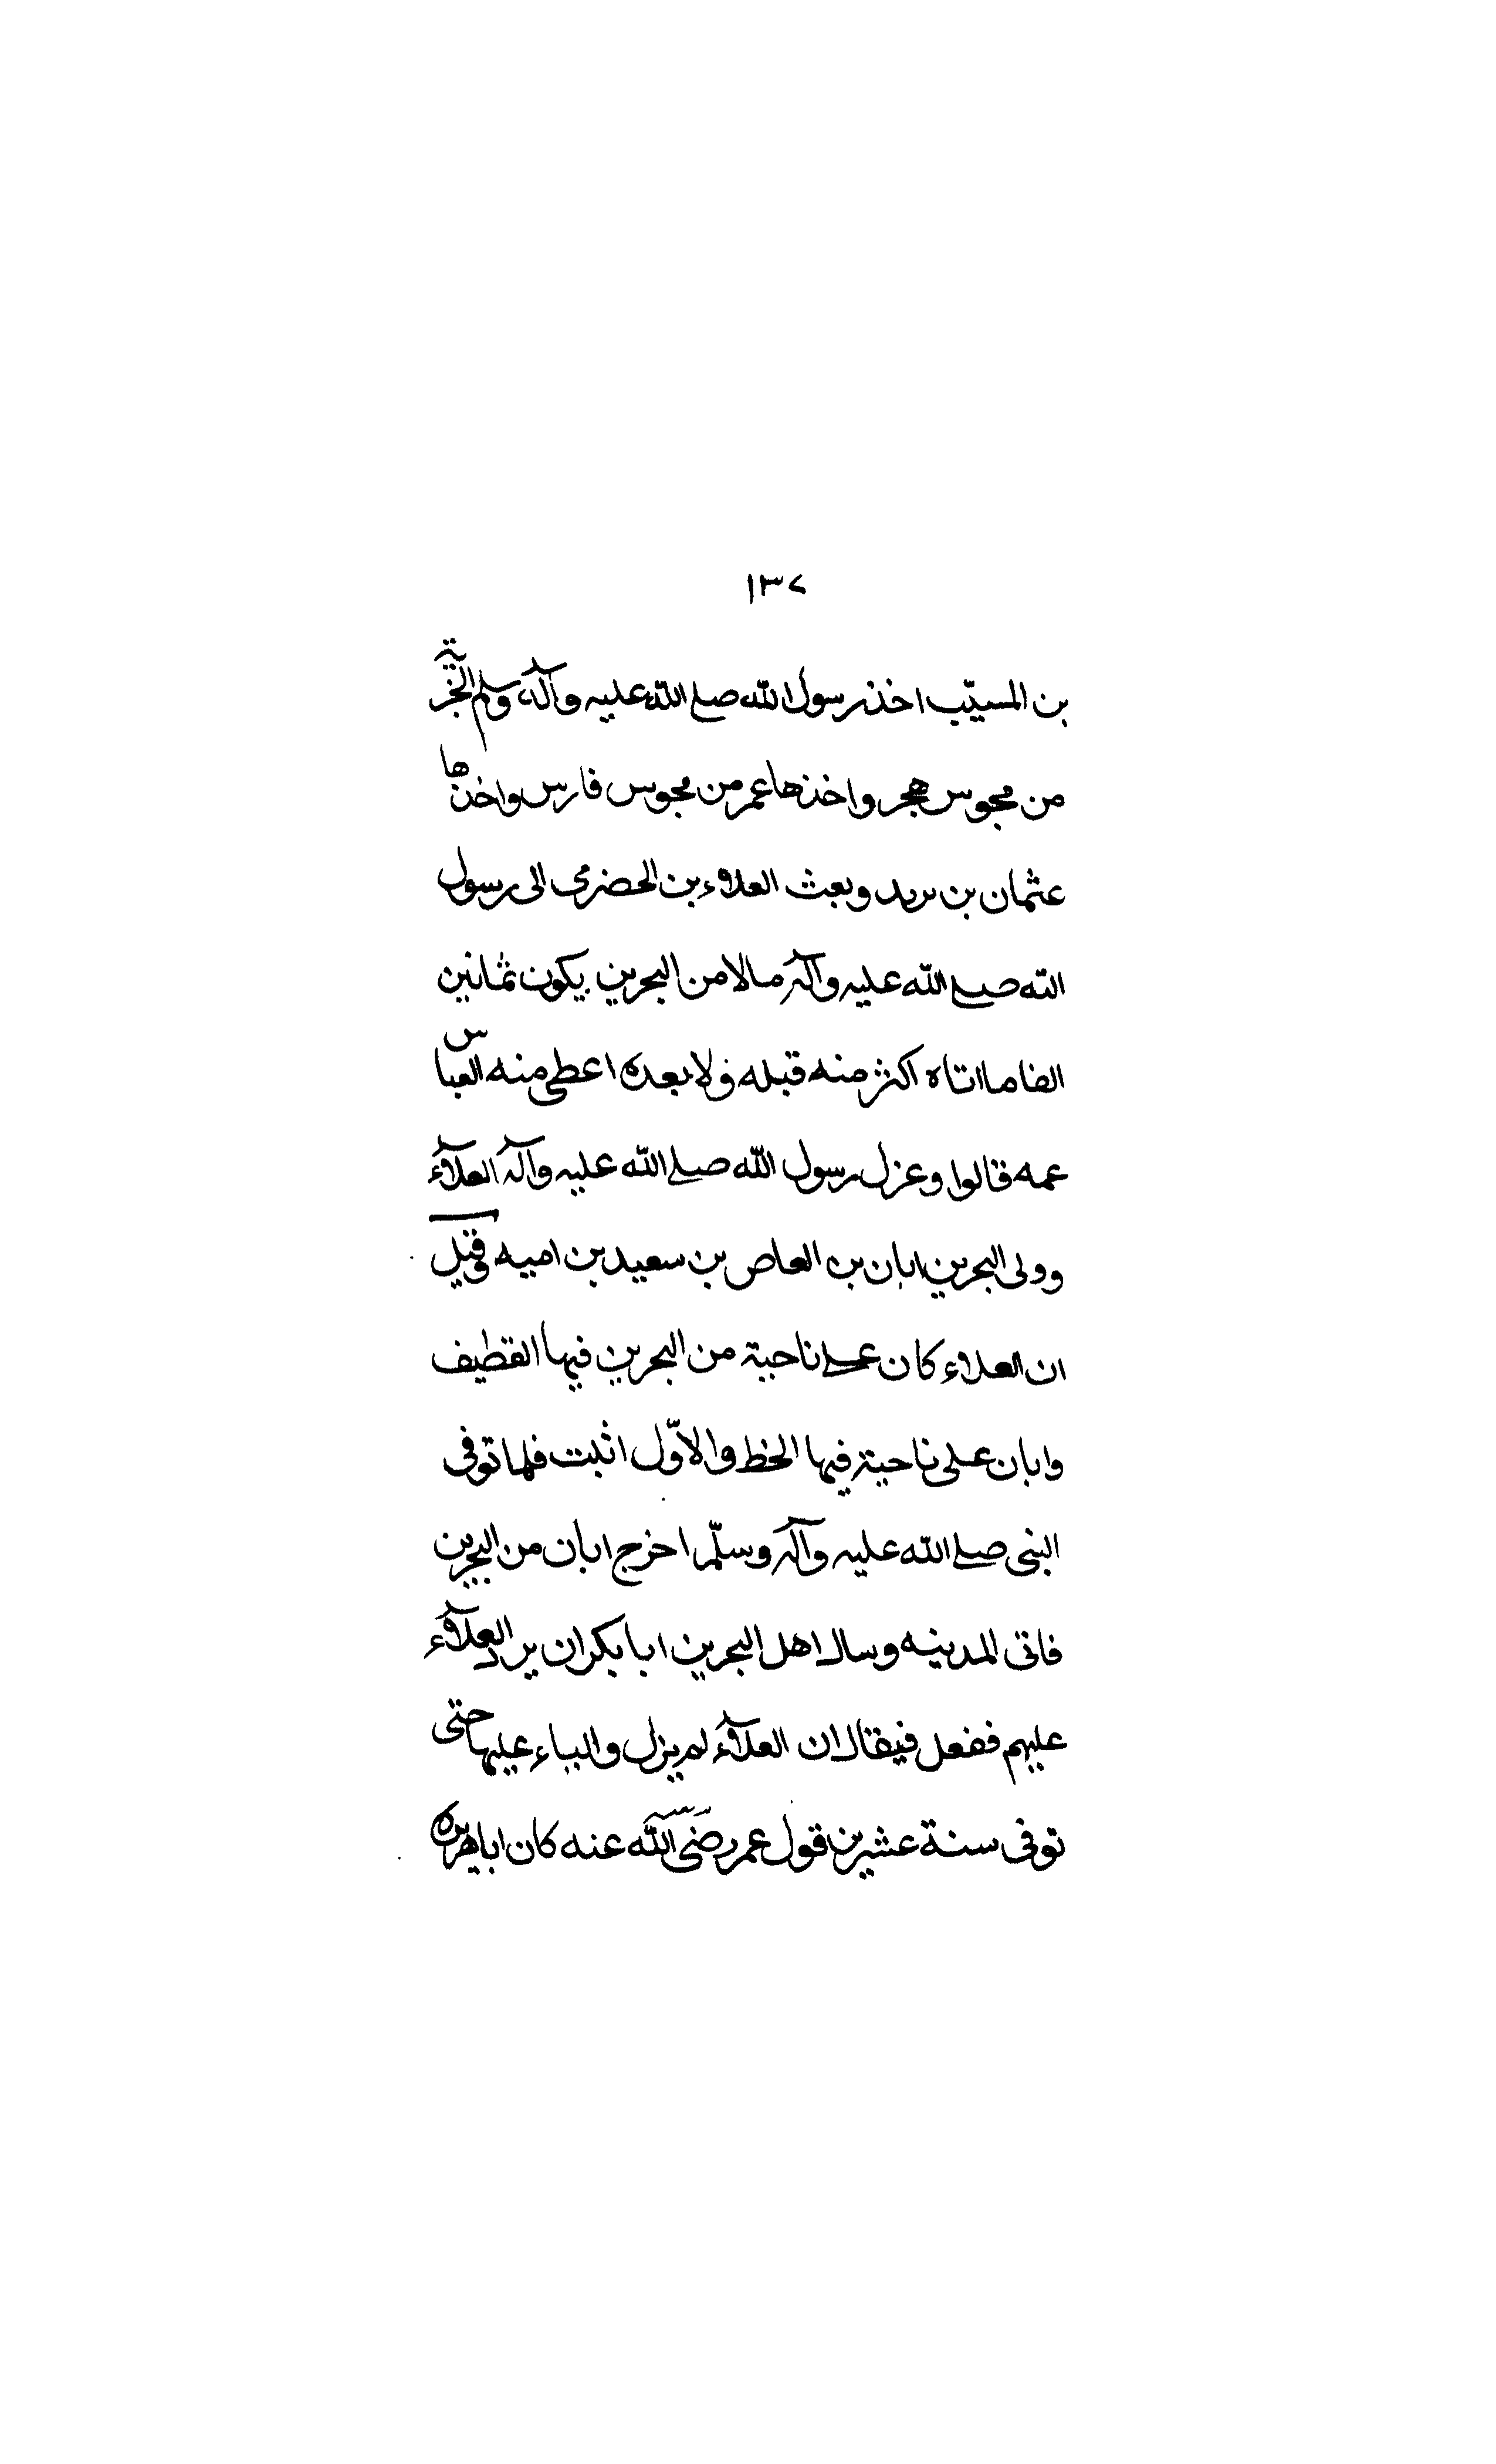 ١٣٧
بن المسيّب اخذ رسول الله صلى الله عليه وآله وسلم الجزية
من مجوس هجر واخذها عمر من مجوس فارس واخذها
عثمان بن بربد وبعث العلاء بن الحضرمى الى رسول
الله صلى الله عليه وآله مالا من البحرين يكون ثمانين
الفا ما اتاه اكثر منه قبله ولا بعده اعطى منه العباس
عمه قالوا وعزل رسول الله صلى الله عليه وآله العلآء
وولى البحرين ابان بن العاص بن سعيد بن اميه وقيل
ان العلاء كان على ناحية من البحرين فيها القطيف
وابان على ناحية فيها الخط والاوّل اثبت فلما توفى
النبى صلى الله عليه وآله وسلّم اخرج ابان من البحرين
فاتى المدينه وسال اهل البحرين ابا بكر ان يرد العلآء
عليهم ففعل فيقال ان العلآء لم يزل والياء عليها حتى
توفى سنة عشرين قول عمر رضى الله عنه كان ابا هريره